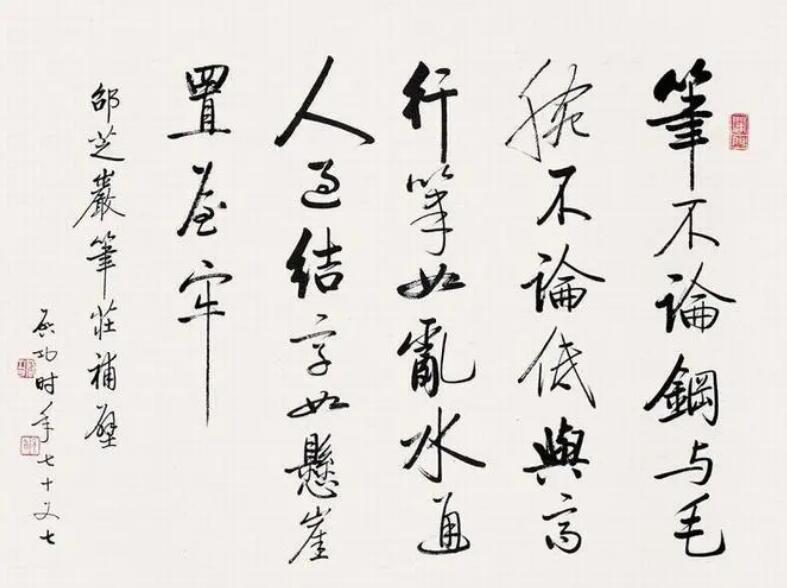 筆不論鋼与毛
腕不論低與高
行筆如亂水通
人过結字如懸崖
置屋牢
邵芝巖筆莊補壁
启功时年七十又七